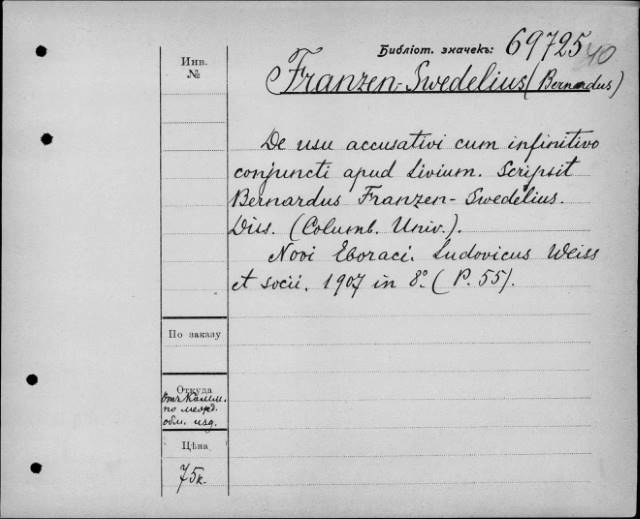 Библіот. значекъ: 69725
40
Franzen-Swedelius (Bernardus)
Инв.
№
De usu accusativi cum infinitivo
conjuncti apud Livium. Scripsit
Bernardus Franzen-Swedelius.
Diss. (Columb. Univ.).
Novi Eboraci. Ludovicus Weiss
et socii. 1907 in 8°. (P. 55).
По заказу
Откуда
Отъ Комм.
по межд.
обм. изд.
Цѣна
75к.